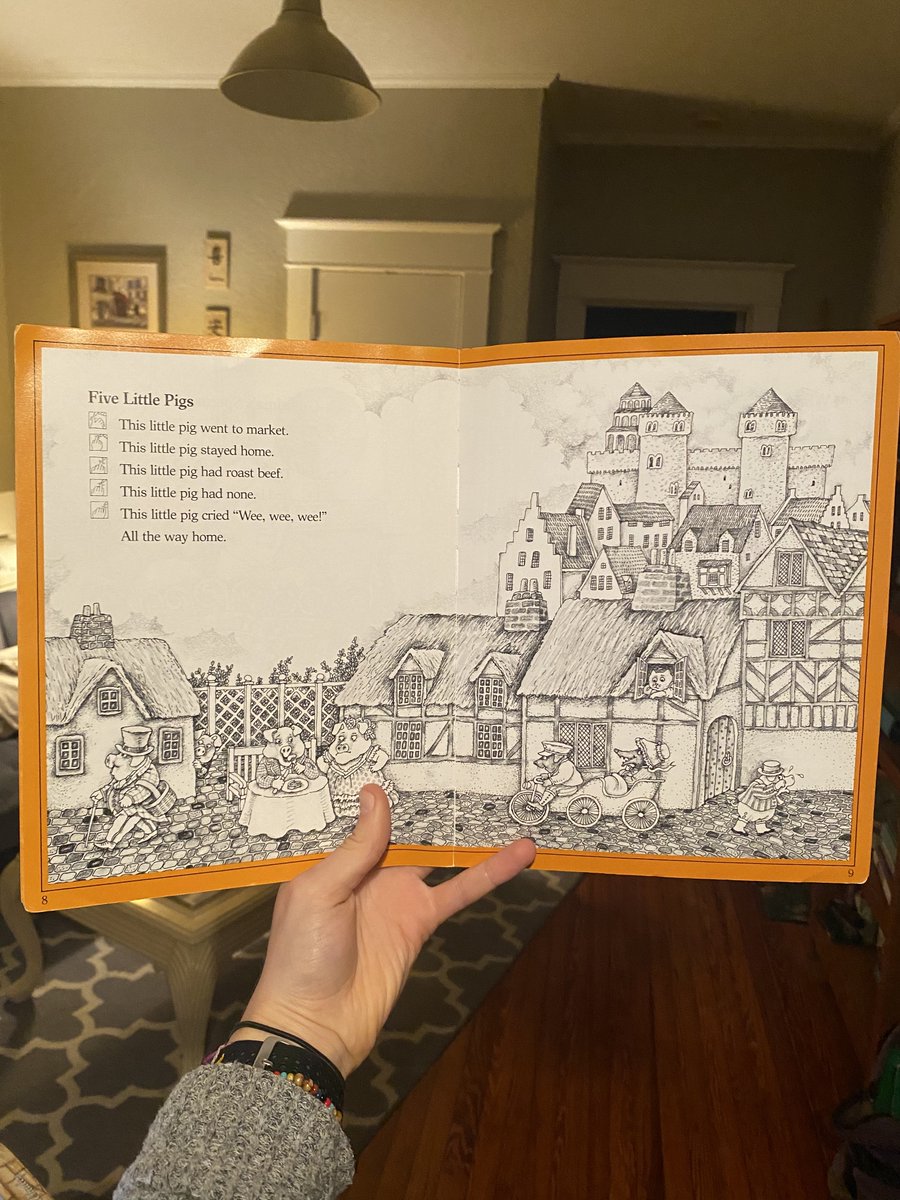 Five Little Pigs
This little pig went to market.
This little pig stayed home.
This little pig had roast beef.
This little pig had none.
This little pig cried “Wee, wee, wee!”
All the way home.
8
9